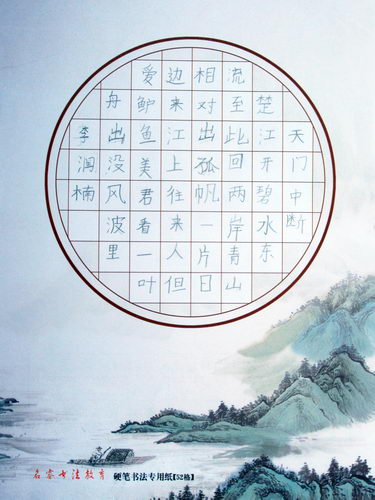 天门中断
楚江开碧水东
流至此回两岸青山
相对出孤帆一片日
边来江上往来人但
爱鲈鱼美君看一叶
舟出没风波里
李润楠
书法教育 硬笔书法专用纸【52格】